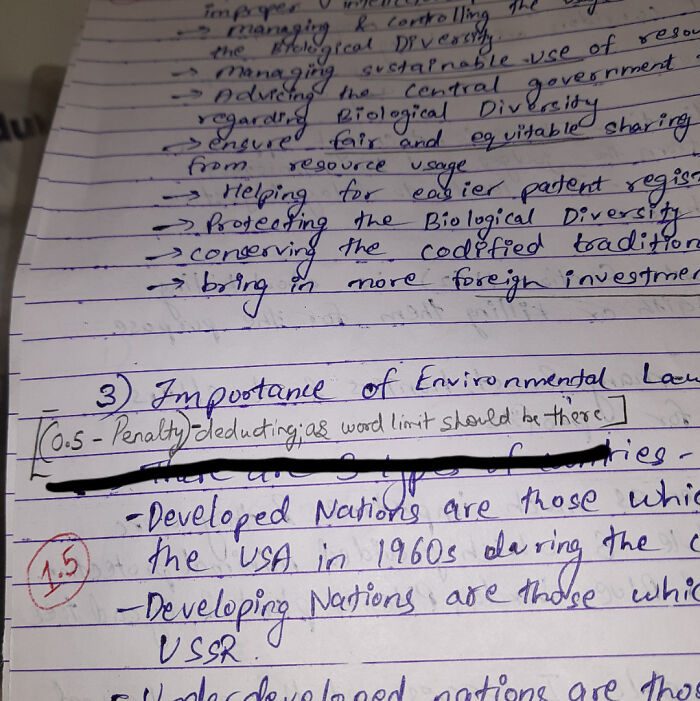 improper
→ managing & controlling the
the Biological Diversity.
→ Managing sustainable use of resou
→ Advicing the central government
regarding Biological Diversity
→ ensure fair and equitable sharing
from resource usage
→ Helping for easier patent regist
→ Protecting the Biological Diversity
→ conserving the codified tradition
→ bring in more foreign investmen
3) Importance of Environmental Law
[(0.5 - Penalty) - deducting; as word limit should be there.]
There are 3 types of countries -
- Developed Nations are those whic
1.5
the USA in 1960s during the c
- Developing Nations are those whic
USSR.
- Underdeveloped nations are thos